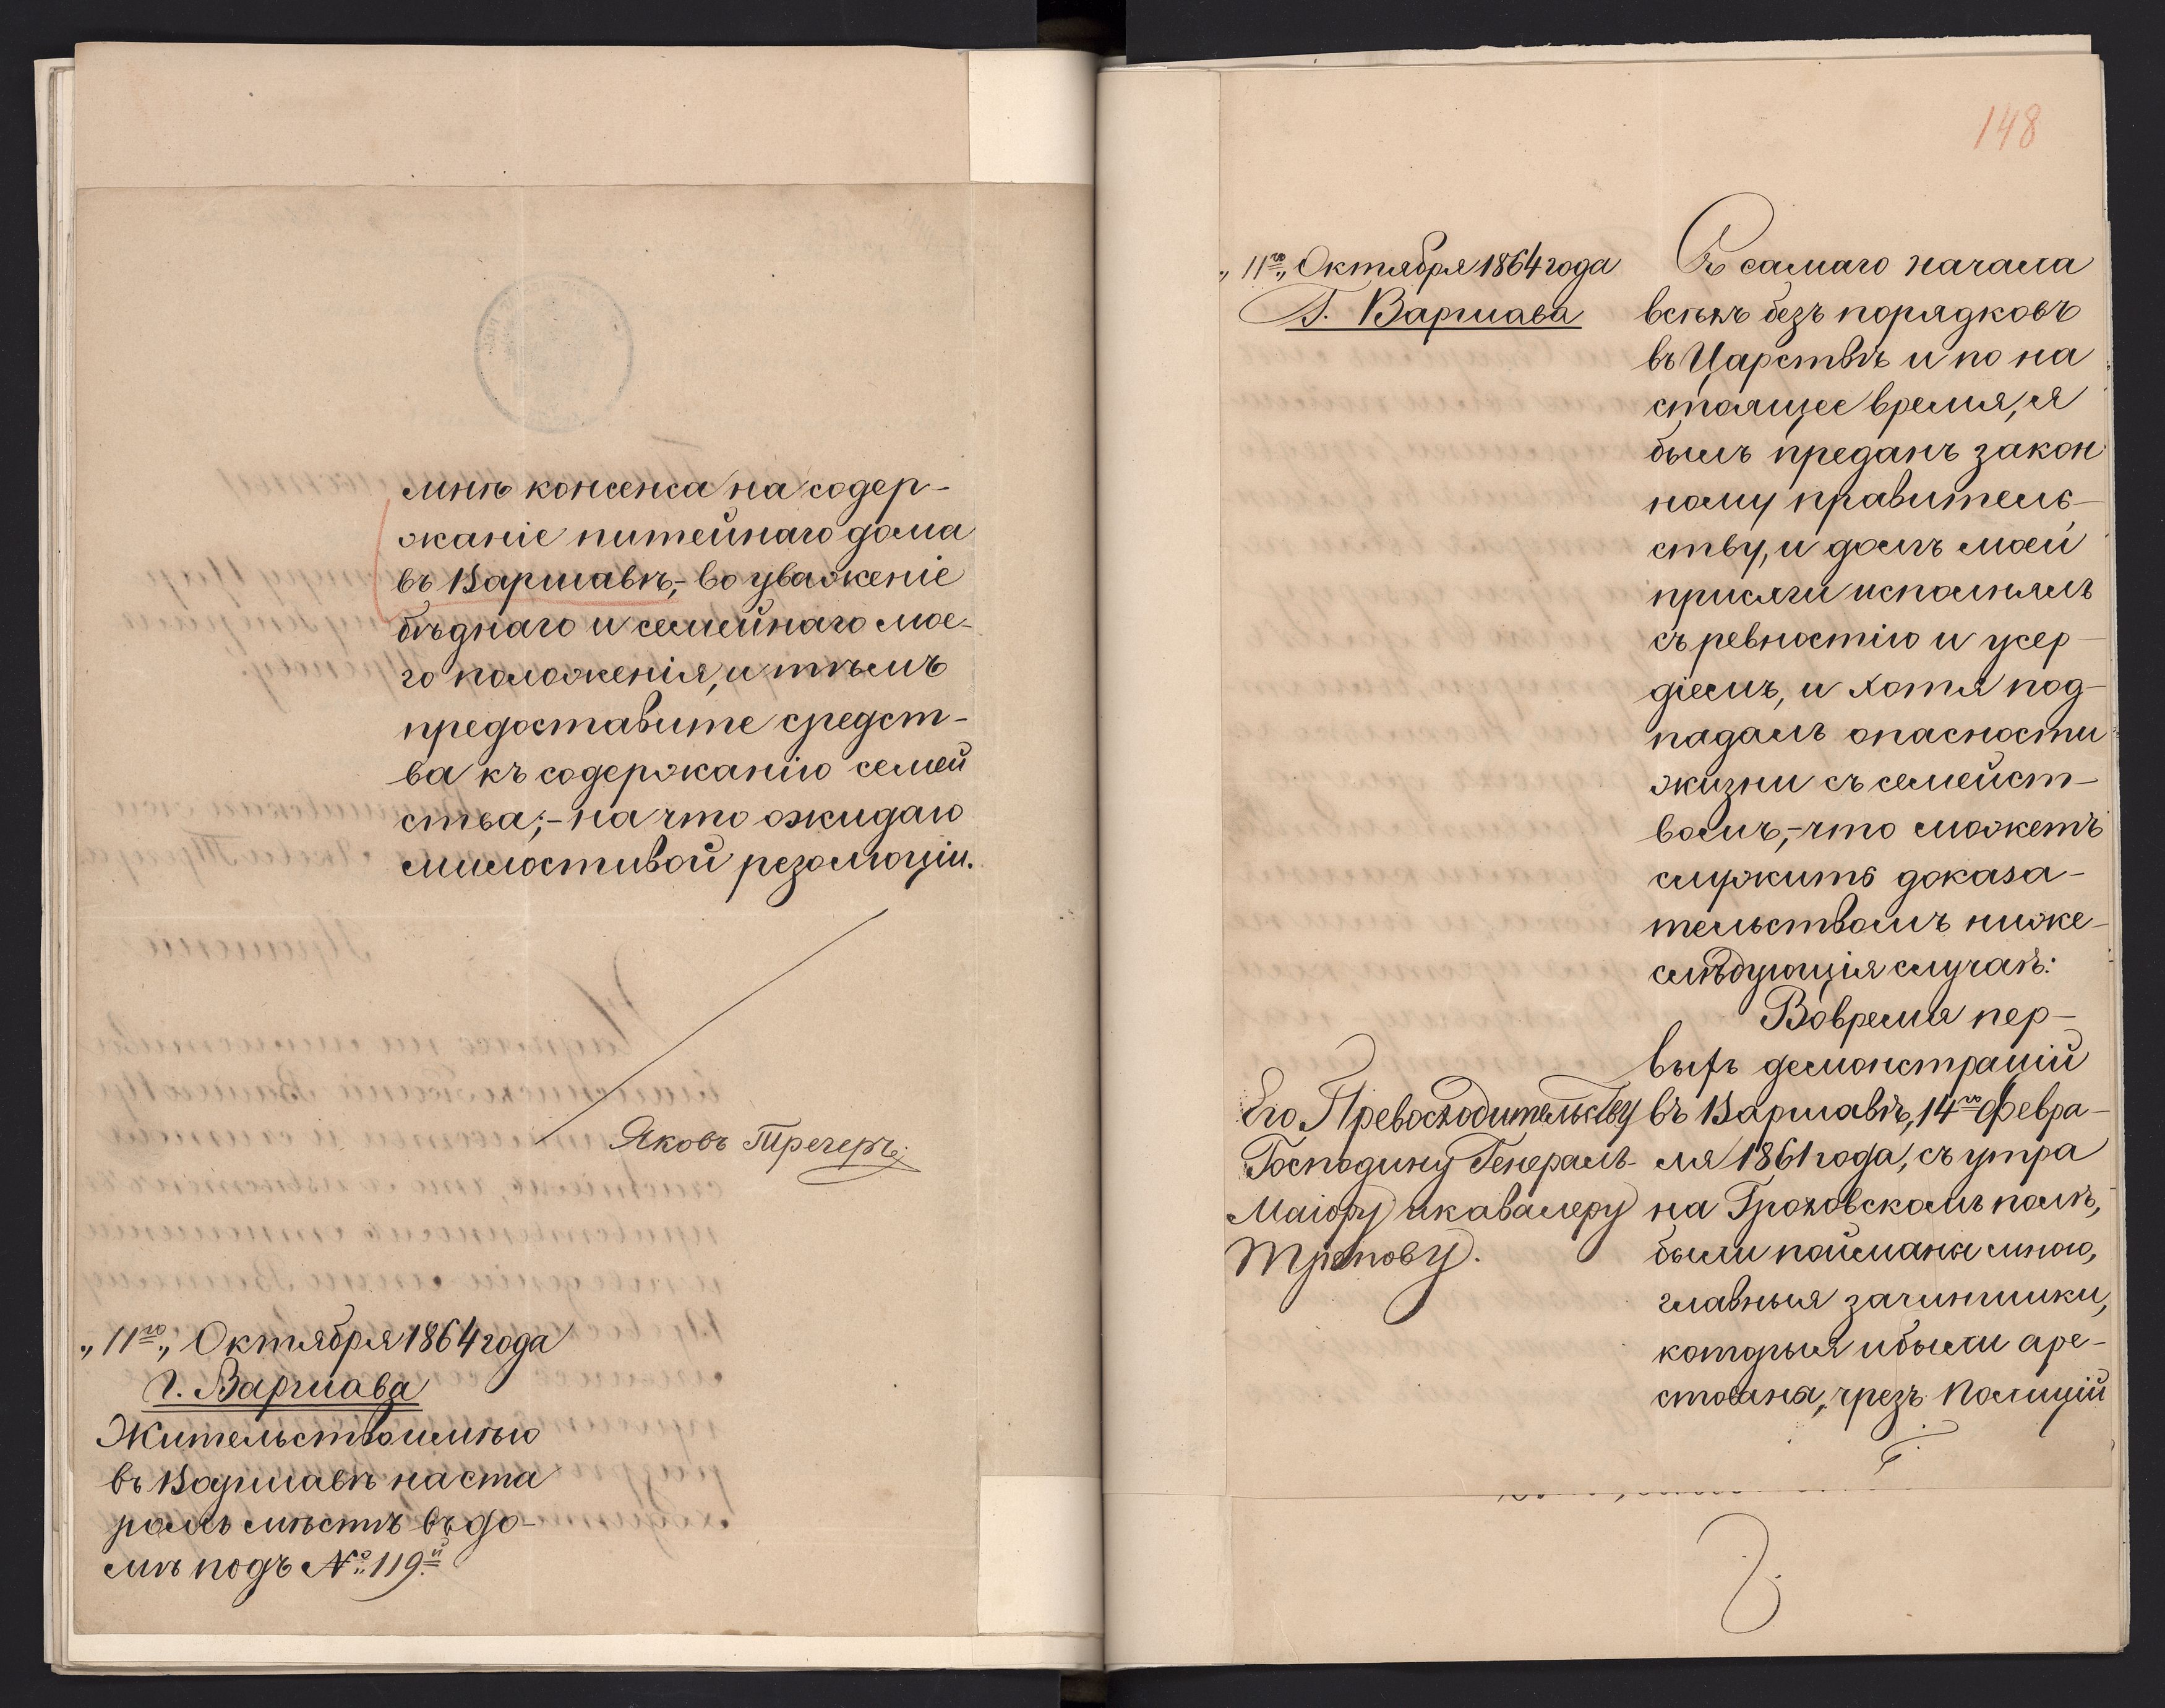 мнѣ консенса на содер-
жаніе питейнаго дома
въ Варшавѣ,- во уваженіе
бѣднаго и семейнаго мое-
го положенія, и тѣмъ
предоставите средст-
ва къ содержанію семей
ства;- на что ожидаю
милостивой резолюціи.
Яковъ Трегеръ
„11го„ Октября 1864 года
г. Варшава
Жительство имѣю
въ Варшавѣ на ста
ромъ мѣстѣ въ до-
мѣ подъ №. 119.й
148
„11го„ Октября 1864 года
Г. Варшава
Съ самаго начала
всѣхъ безъ порядковъ
въ Царствѣ и по на
стоящее время, я
былъ преданъ закон
ному правитель-
ству, и долгъ моей
присяги исполнялъ
съ ревностію и усер-
діемъ, и хотя под-
падалъ опасности
жизни съ семейст-
вомъ,- что можетъ
служить доказа-
тельствомъ ниже-
слѣдующія случаѣ:
Вовремя пер-
выхъ демонстрацій
въ Варшавѣ, 14го Февра-
ля 1861 года, съ утра
на Гроховскомъ полѣ,
были поймана мною,
главныя зачинщики,
которыя и были аре-
стована, чрезъ Полицій
Его Превосходительству
Господину Генералъ-
Маіору и кавалеру
Трепову.